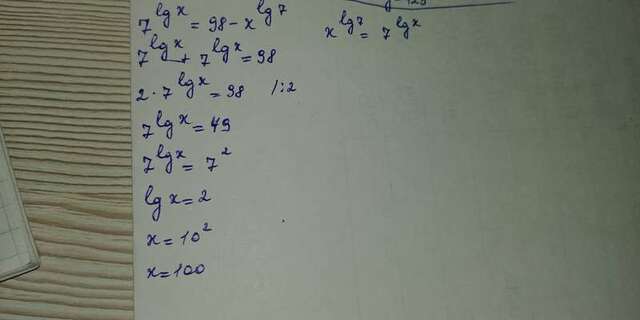 7^lg x = 98 - x^lg 7
7^lg x + 7^lg x = 98
2 · 7^lg x = 98 /:2
7^lg x = 49
7^lg x = 7^2
lg x = 2
x = 10^2
x = 100
x^lg 7 = 7^lg x